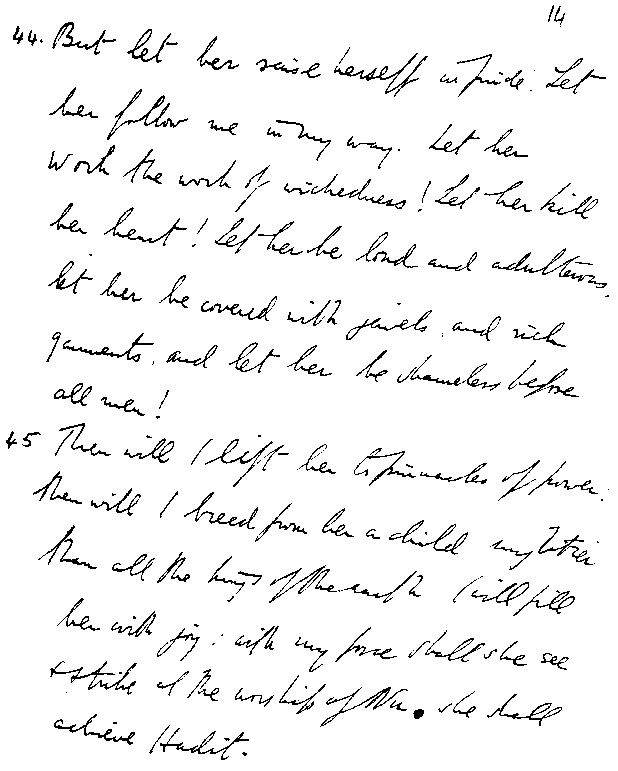 14
44. But let her raise herself in pride. Let
her follow me in my way. Let her
work the work of wickedness! Let her kill
her heart! Let her be loud and adulterous,
let her be covered with jewels, and rich
garments, and let her be shameless before
all men!
45 Then will I lift her to pinnacles of power:
then will I breed from her a child mightier
than all the kings of the earth I will fill
her with joy: with my force shall she see
& strike at the worship of Nu. she shall
achieve Hadit.